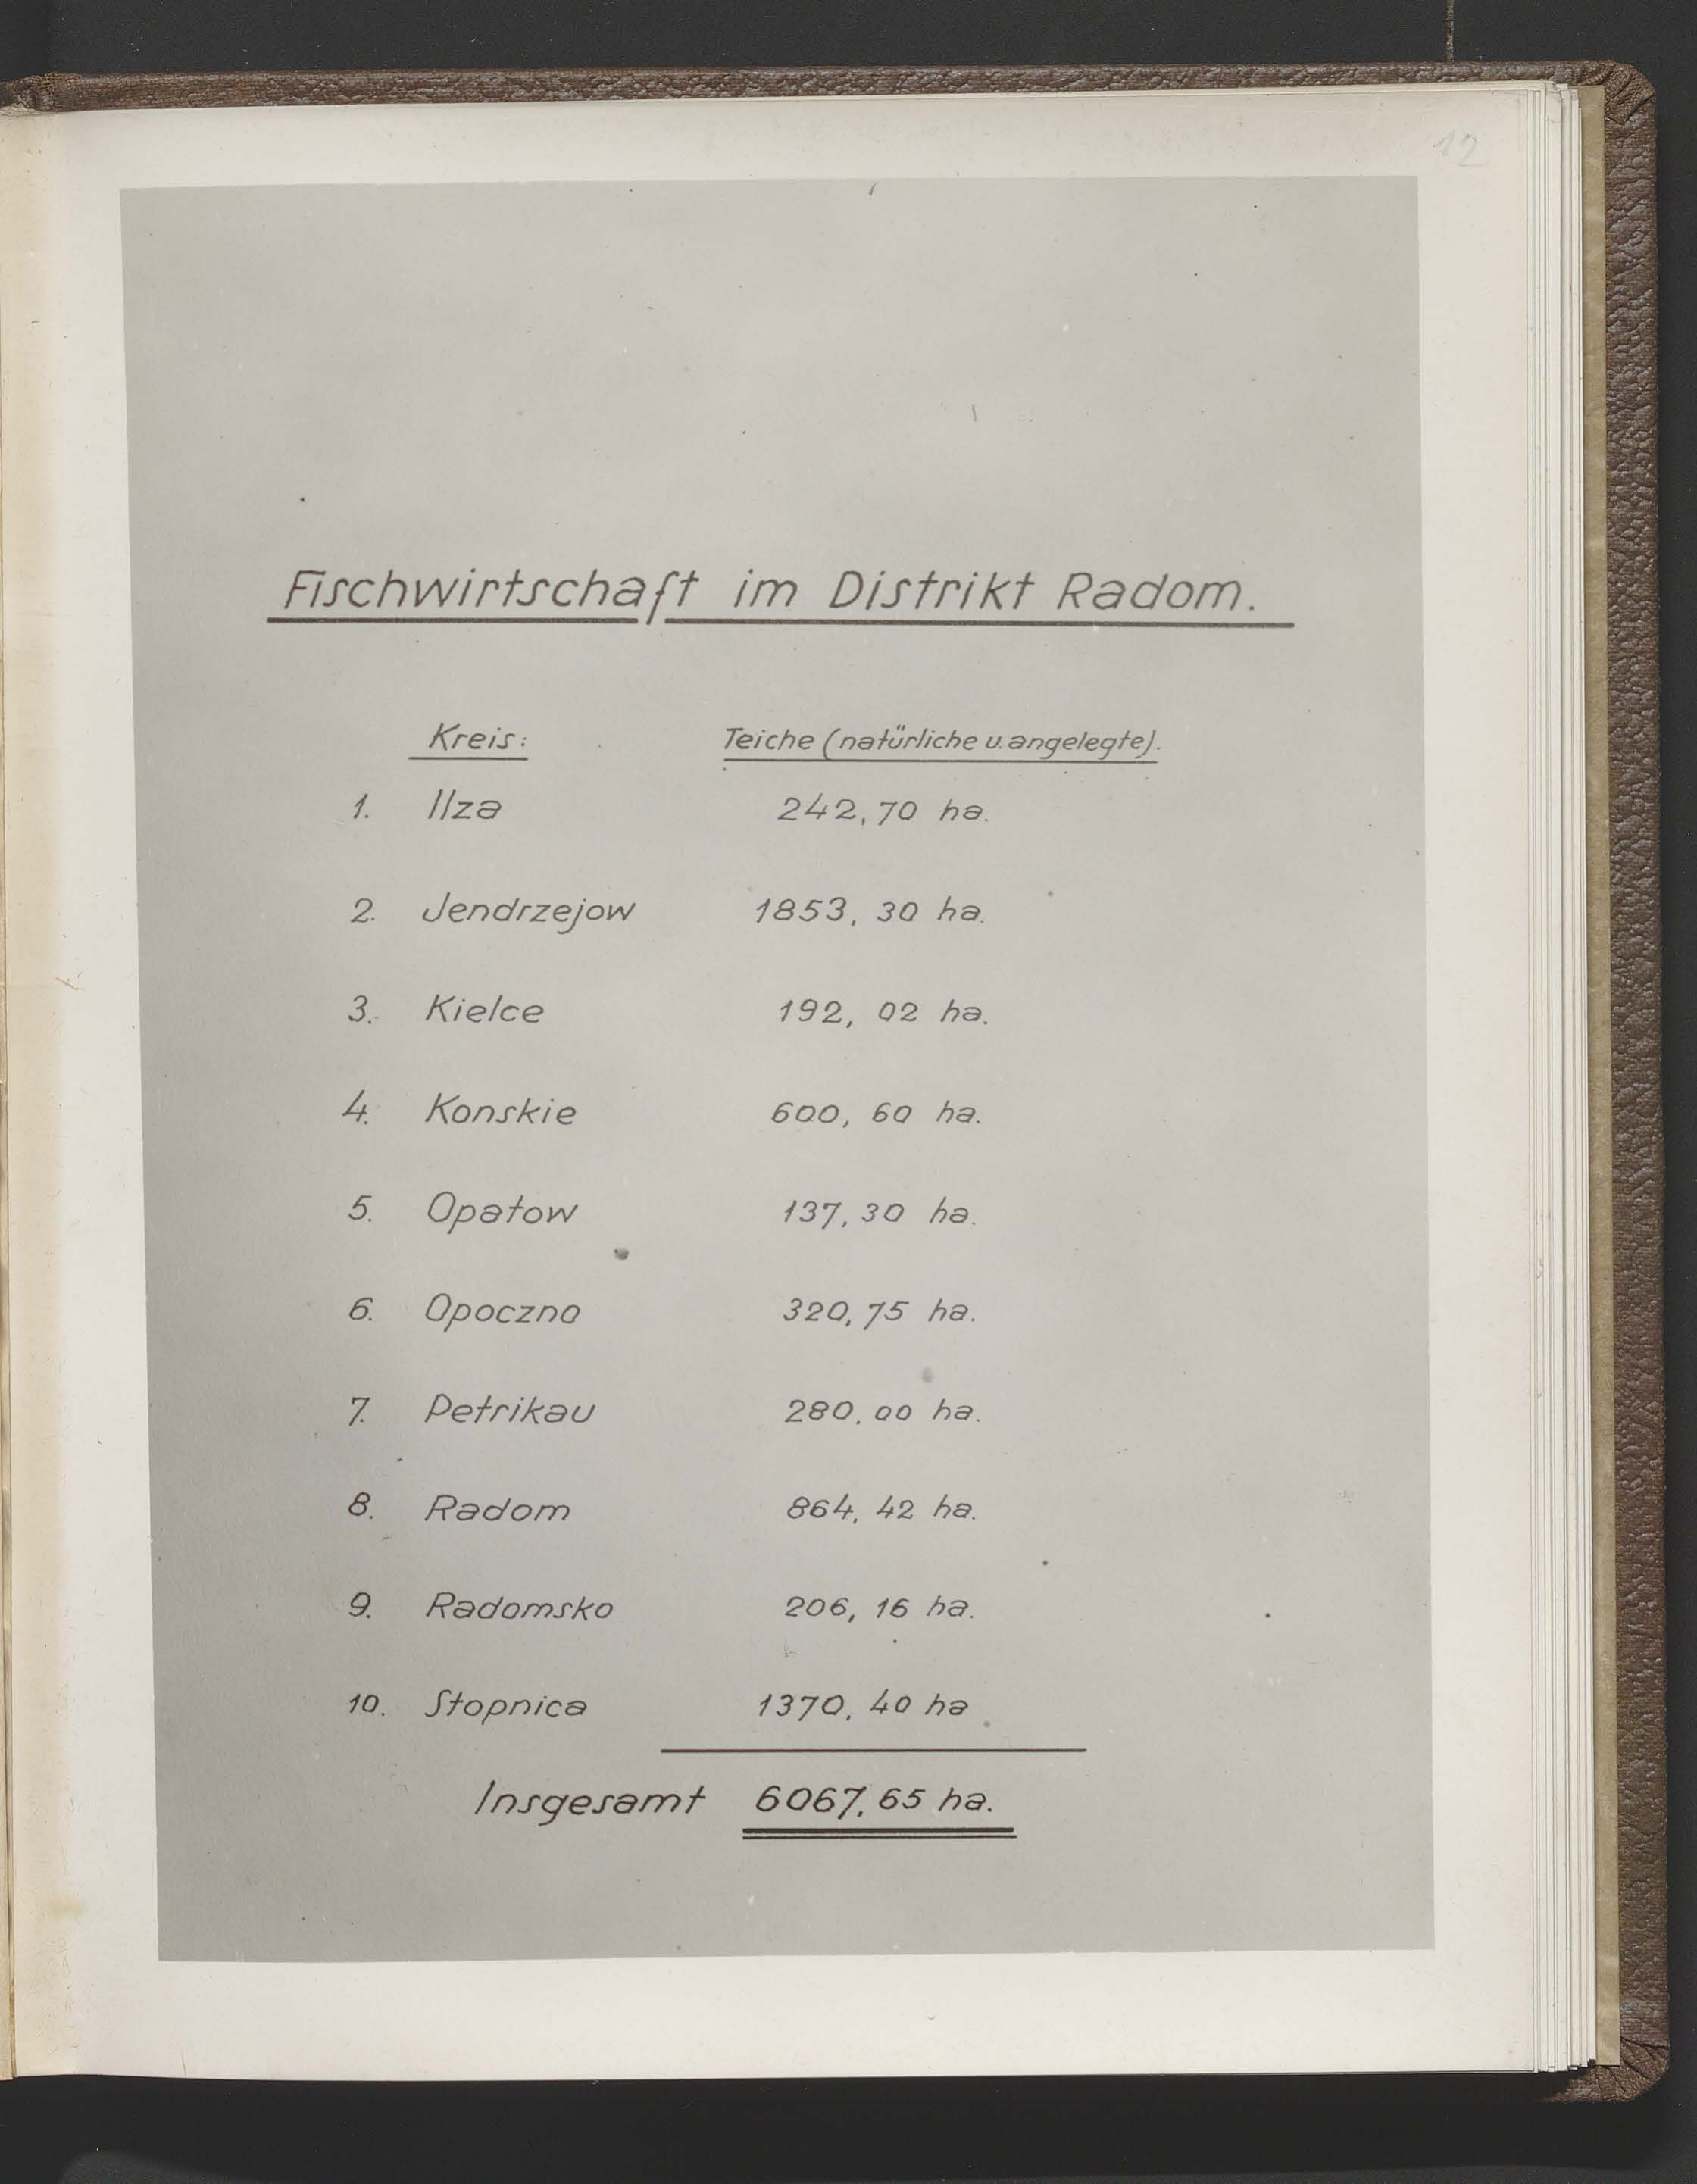 12
Fischwirtschaft im Distrikt Radom.
Kreis: Teiche (natürliche u. angelegte).
1. Ilza 242,70 ha.
2. Jendrzejow 1853, 30 ha.
3. Kielce 192, 02 ha.
4. Konskie 600, 60 ha.
5. Opatow 137, 30 ha.
6. Opoczno 320, 75 ha.
7. Petrikau 280, 00 ha.
8. Radom 864, 42 ha.
9. Radomsko 206, 16 ha.
10. Stopnica 1370, 40 ha
Insgesamt 6067, 65 ha.